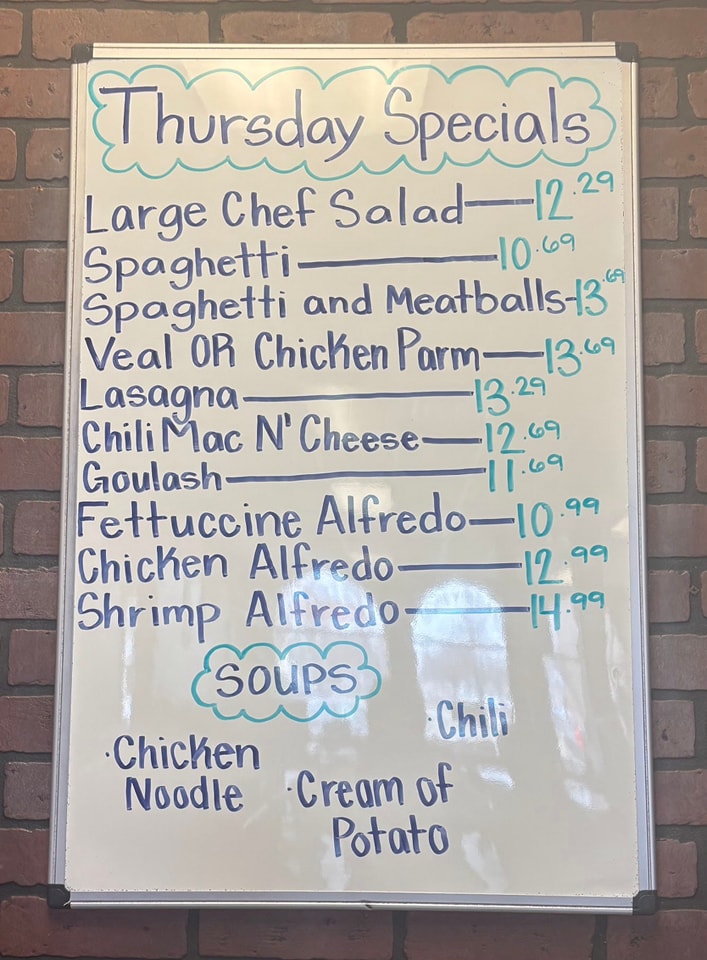 Thursday Specials
Large Chef Salad—12.29
Spaghetti—10.69
Spaghetti and Meatballs-13.69
Veal OR Chicken Parm—13.69
Lasagna—13.29
Chili Mac N' Cheese—12.69
Goulash—11.69
Fettuccine Alfredo—10.99
Chicken Alfredo—12.99
Shrimp Alfredo—14.99
SOUPS
·Chili
·Chicken
Noodle
·Cream of
Potato